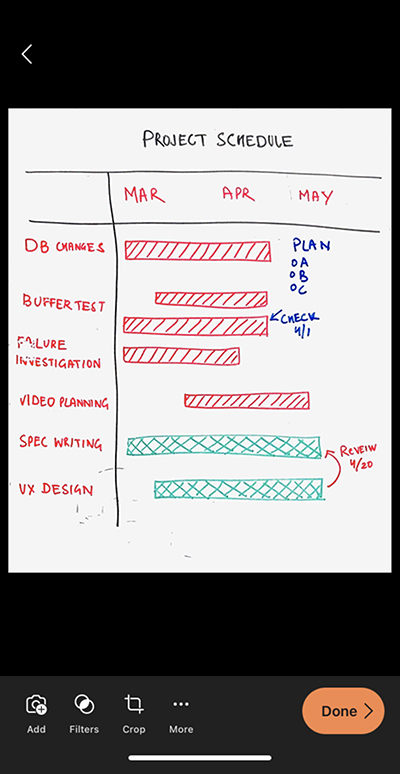 PROJECT SCHEDULE
MAR APR MAY
DB CHANGES
PLAN
A
B
C
BUFFER TEST
CHECK
4/1
FAILURE
INVESTIGATION
VIDEO PLANNING
SPEC WRITING
REVEIW
4/20
UX DESIGN
Add Filters Crop More
Done